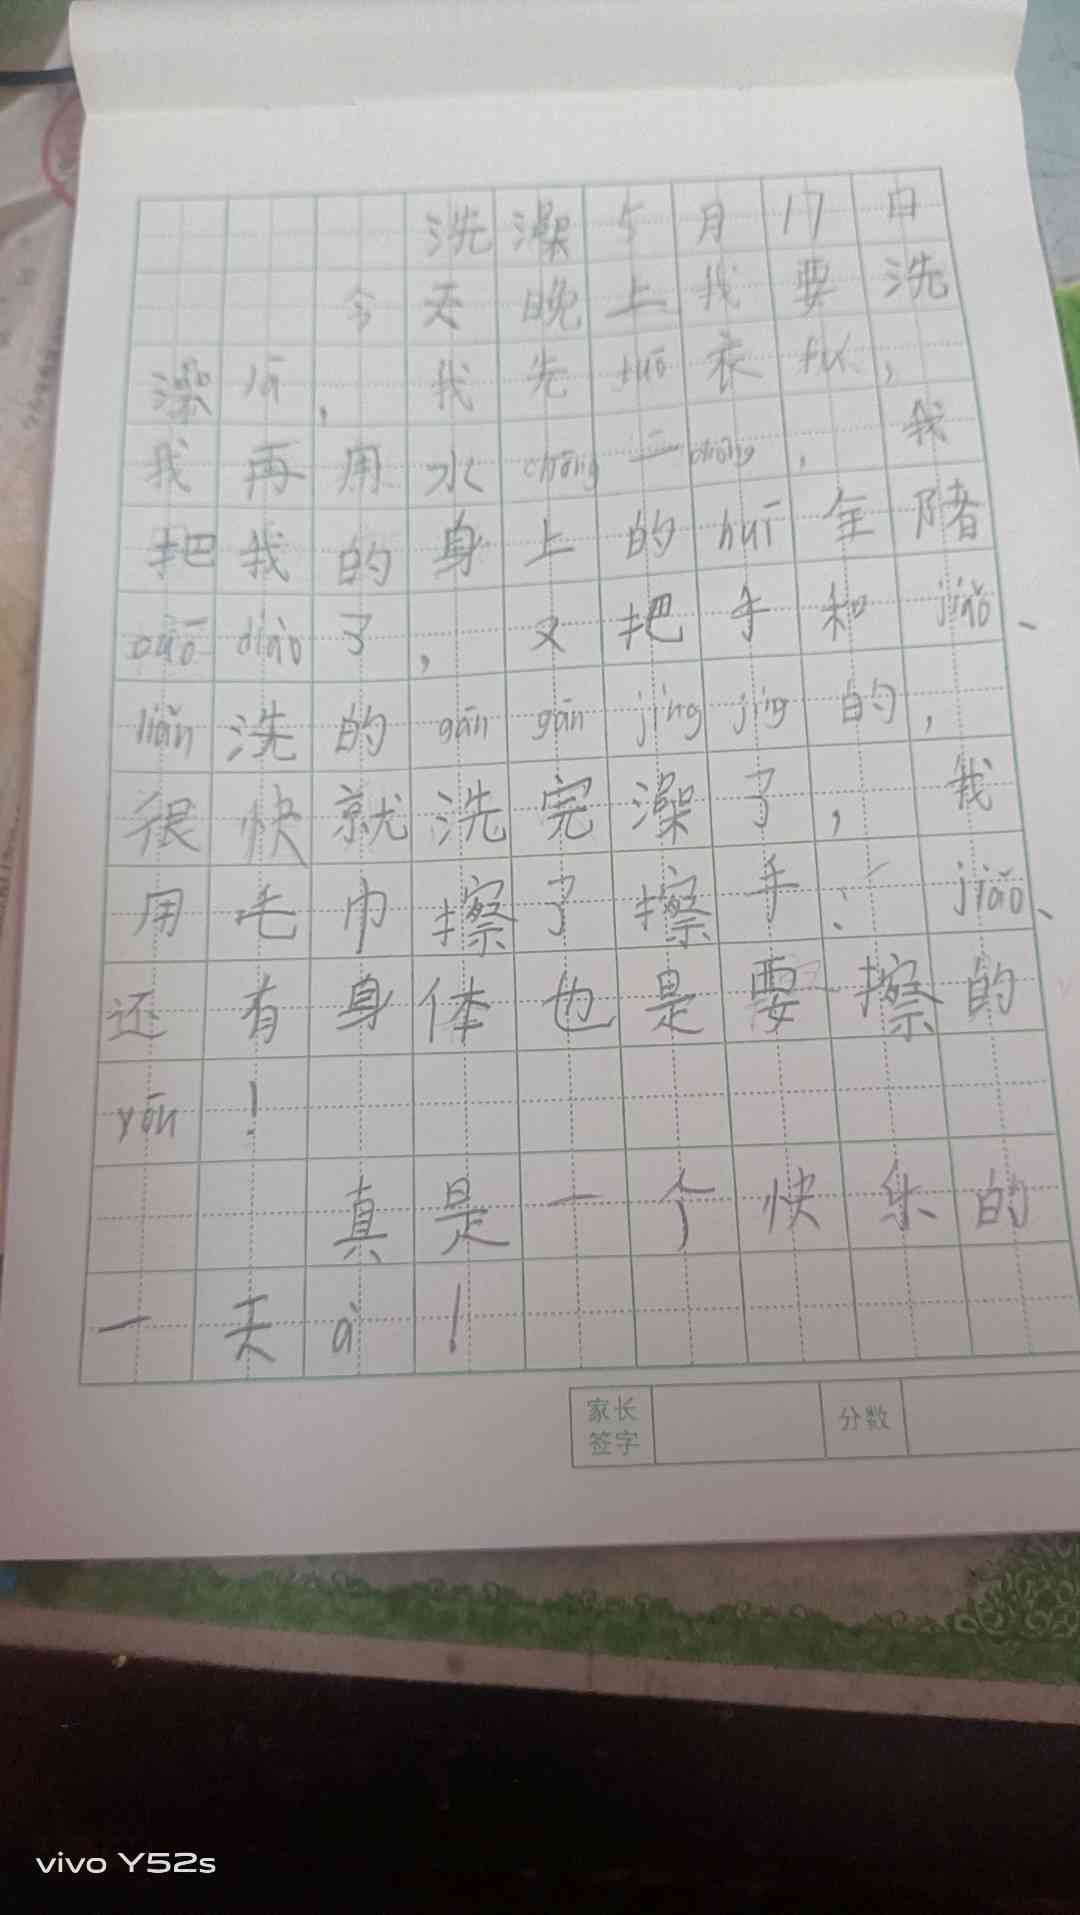 洗澡5月17日
今天晚上我要洗
澡lā,我先tuō衣fú,
我再用水chōng一chōng,我
把我的身上的huī全陼
cuō diào了,又把手和jiǎo、
liǎn洗的gān gān jìng jìng的,
很快就洗完澡了,我
用毛巾擦了擦手、jiǎo、
还有身体也是要擦的
yōu!
真是一个快乐的
一天à!
家长签字
分数
vivo Y52s